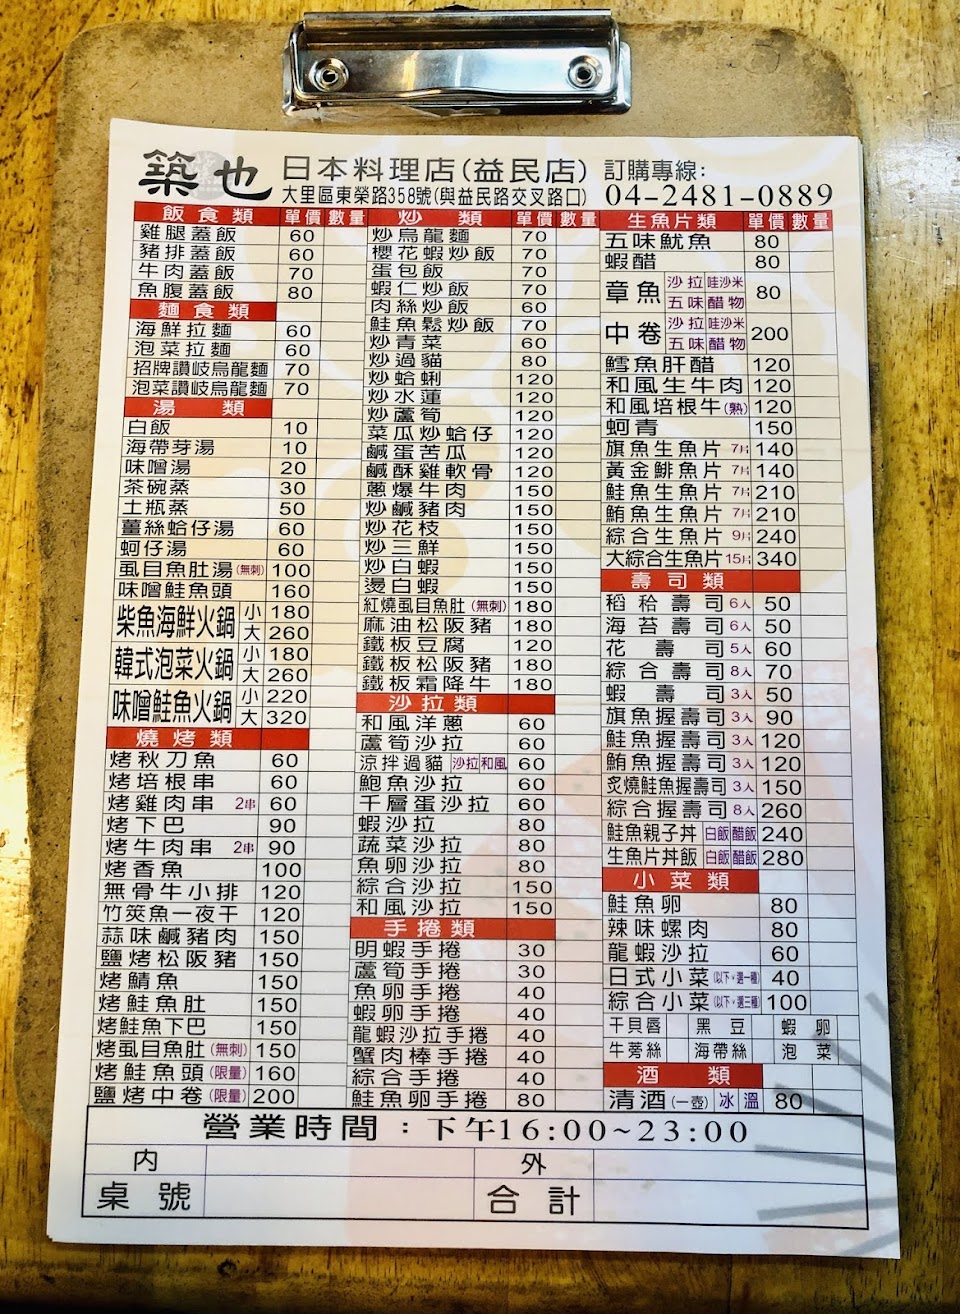 築也 日本料理店(益民店) 訂購專線:
大里區東榮路358號(與益民路交叉路口) 04-2481-0889
飯食類 單價 數量
雞腿蓋飯 60
豬排蓋飯 60
牛肉蓋飯 70
魚腹蓋飯 80
麵食類
海鮮拉麵 60
泡菜拉麵 60
招牌讚岐烏龍麵 70
泡菜讚岐烏龍麵 70
湯類
白飯 10
海帶芽湯 10
味噌湯 20
茶碗蒸 30
土瓶蒸 50
薑絲蛤仔湯 60
蚵仔湯 60
虱目魚肚湯(無刺) 100
味噌鮭魚頭 160
柴魚海鮮火鍋 小 180
大 260
韓式泡菜火鍋 小 180
大 260
味噌鮭魚火鍋 小 220
大 320
燒烤類
烤秋刀魚 60
烤培根串 60
烤雞肉串 2串 60
烤下巴 90
烤牛肉串 2串 90
烤香魚 100
無骨牛小排 120
竹筴魚一夜干 120
蒜味鹹豬肉 150
鹽烤松阪豬 150
烤鯖魚 150
烤鮭魚肚 150
烤鮭魚下巴 150
烤虱目魚肚(無刺) 150
烤鮭魚頭(限量) 160
鹽烤中卷(限量) 200
炒類 單價 數量
炒烏龍麵 70
櫻花蝦炒飯 70
蛋包飯 70
蝦仁炒飯 70
肉絲炒飯 60
鮭魚鬆炒飯 70
炒青菜 60
炒過貓 80
炒蛤蜊 120
炒水蓮 120
炒蘆筍 120
菜瓜炒蛤仔 120
鹹蛋苦瓜 120
鹹酥雞軟骨 120
蔥爆牛肉 150
炒鹹豬肉 150
炒花枝 150
炒三鮮 150
炒白蝦 150
燙白蝦 150
紅燒虱目魚肚(無刺) 180
麻油松阪豬 180
鐵板豆腐 120
鐵板松阪豬 180
鐵板霜降牛 180
沙拉類
和風洋蔥 60
蘆筍沙拉 60
涼拌過貓 沙拉 和風 60
鮑魚沙拉 60
千層蛋沙拉 60
蝦沙拉 80
蔬菜沙拉 80
魚卵沙拉 80
綜合沙拉 150
和風沙拉 150
手捲類
明蝦手捲 30
蘆筍手捲 30
魚卵手捲 40
蝦卵手捲 40
龍蝦沙拉手捲 40
蟹肉棒手捲 40
綜合手捲 40
鮭魚卵手捲 80
生魚片類 單價 數量
五味魷魚 80
蝦醋 80
章魚 沙拉 哇沙米 五味 醋物 80
中卷 沙拉 哇沙米 五味 醋物 200
鱈魚肝醋 120
和風生牛肉 120
和風培根牛(熟) 120
蚵青 150
旗魚生魚片 7片 140
黃金鯡魚片 7片 140
鮭魚生魚片 7片 210
鮪魚生魚片 7片 210
綜合生魚片 9片 240
大綜合生魚片 15片 340
壽司類
稻秴壽司 6入 50
海苔壽司 6入 50
花壽司 5入 60
綜合壽司 8入 70
蝦壽司 3入 50
旗魚握壽司 3入 90
鮭魚握壽司 3入 120
鮪魚握壽司 3入 120
炙燒鮭魚握壽司 3入 150
綜合握壽司 8入 260
鮭魚親子丼 白飯 醋飯 240
生魚片丼飯 白飯 醋飯 280
小菜類
鮭魚卵 80
辣味螺肉 80
龍蝦沙拉 60
日式小菜(以下ˇ選一種) 40
綜合小菜(以下ˇ選三種) 100
干貝唇 黑豆 蝦卵
牛蒡絲 海帶絲 泡菜
酒類
清酒(一壺) 冰 溫 80
營業時間：下午16:00~23:00
內 外
桌號 合計